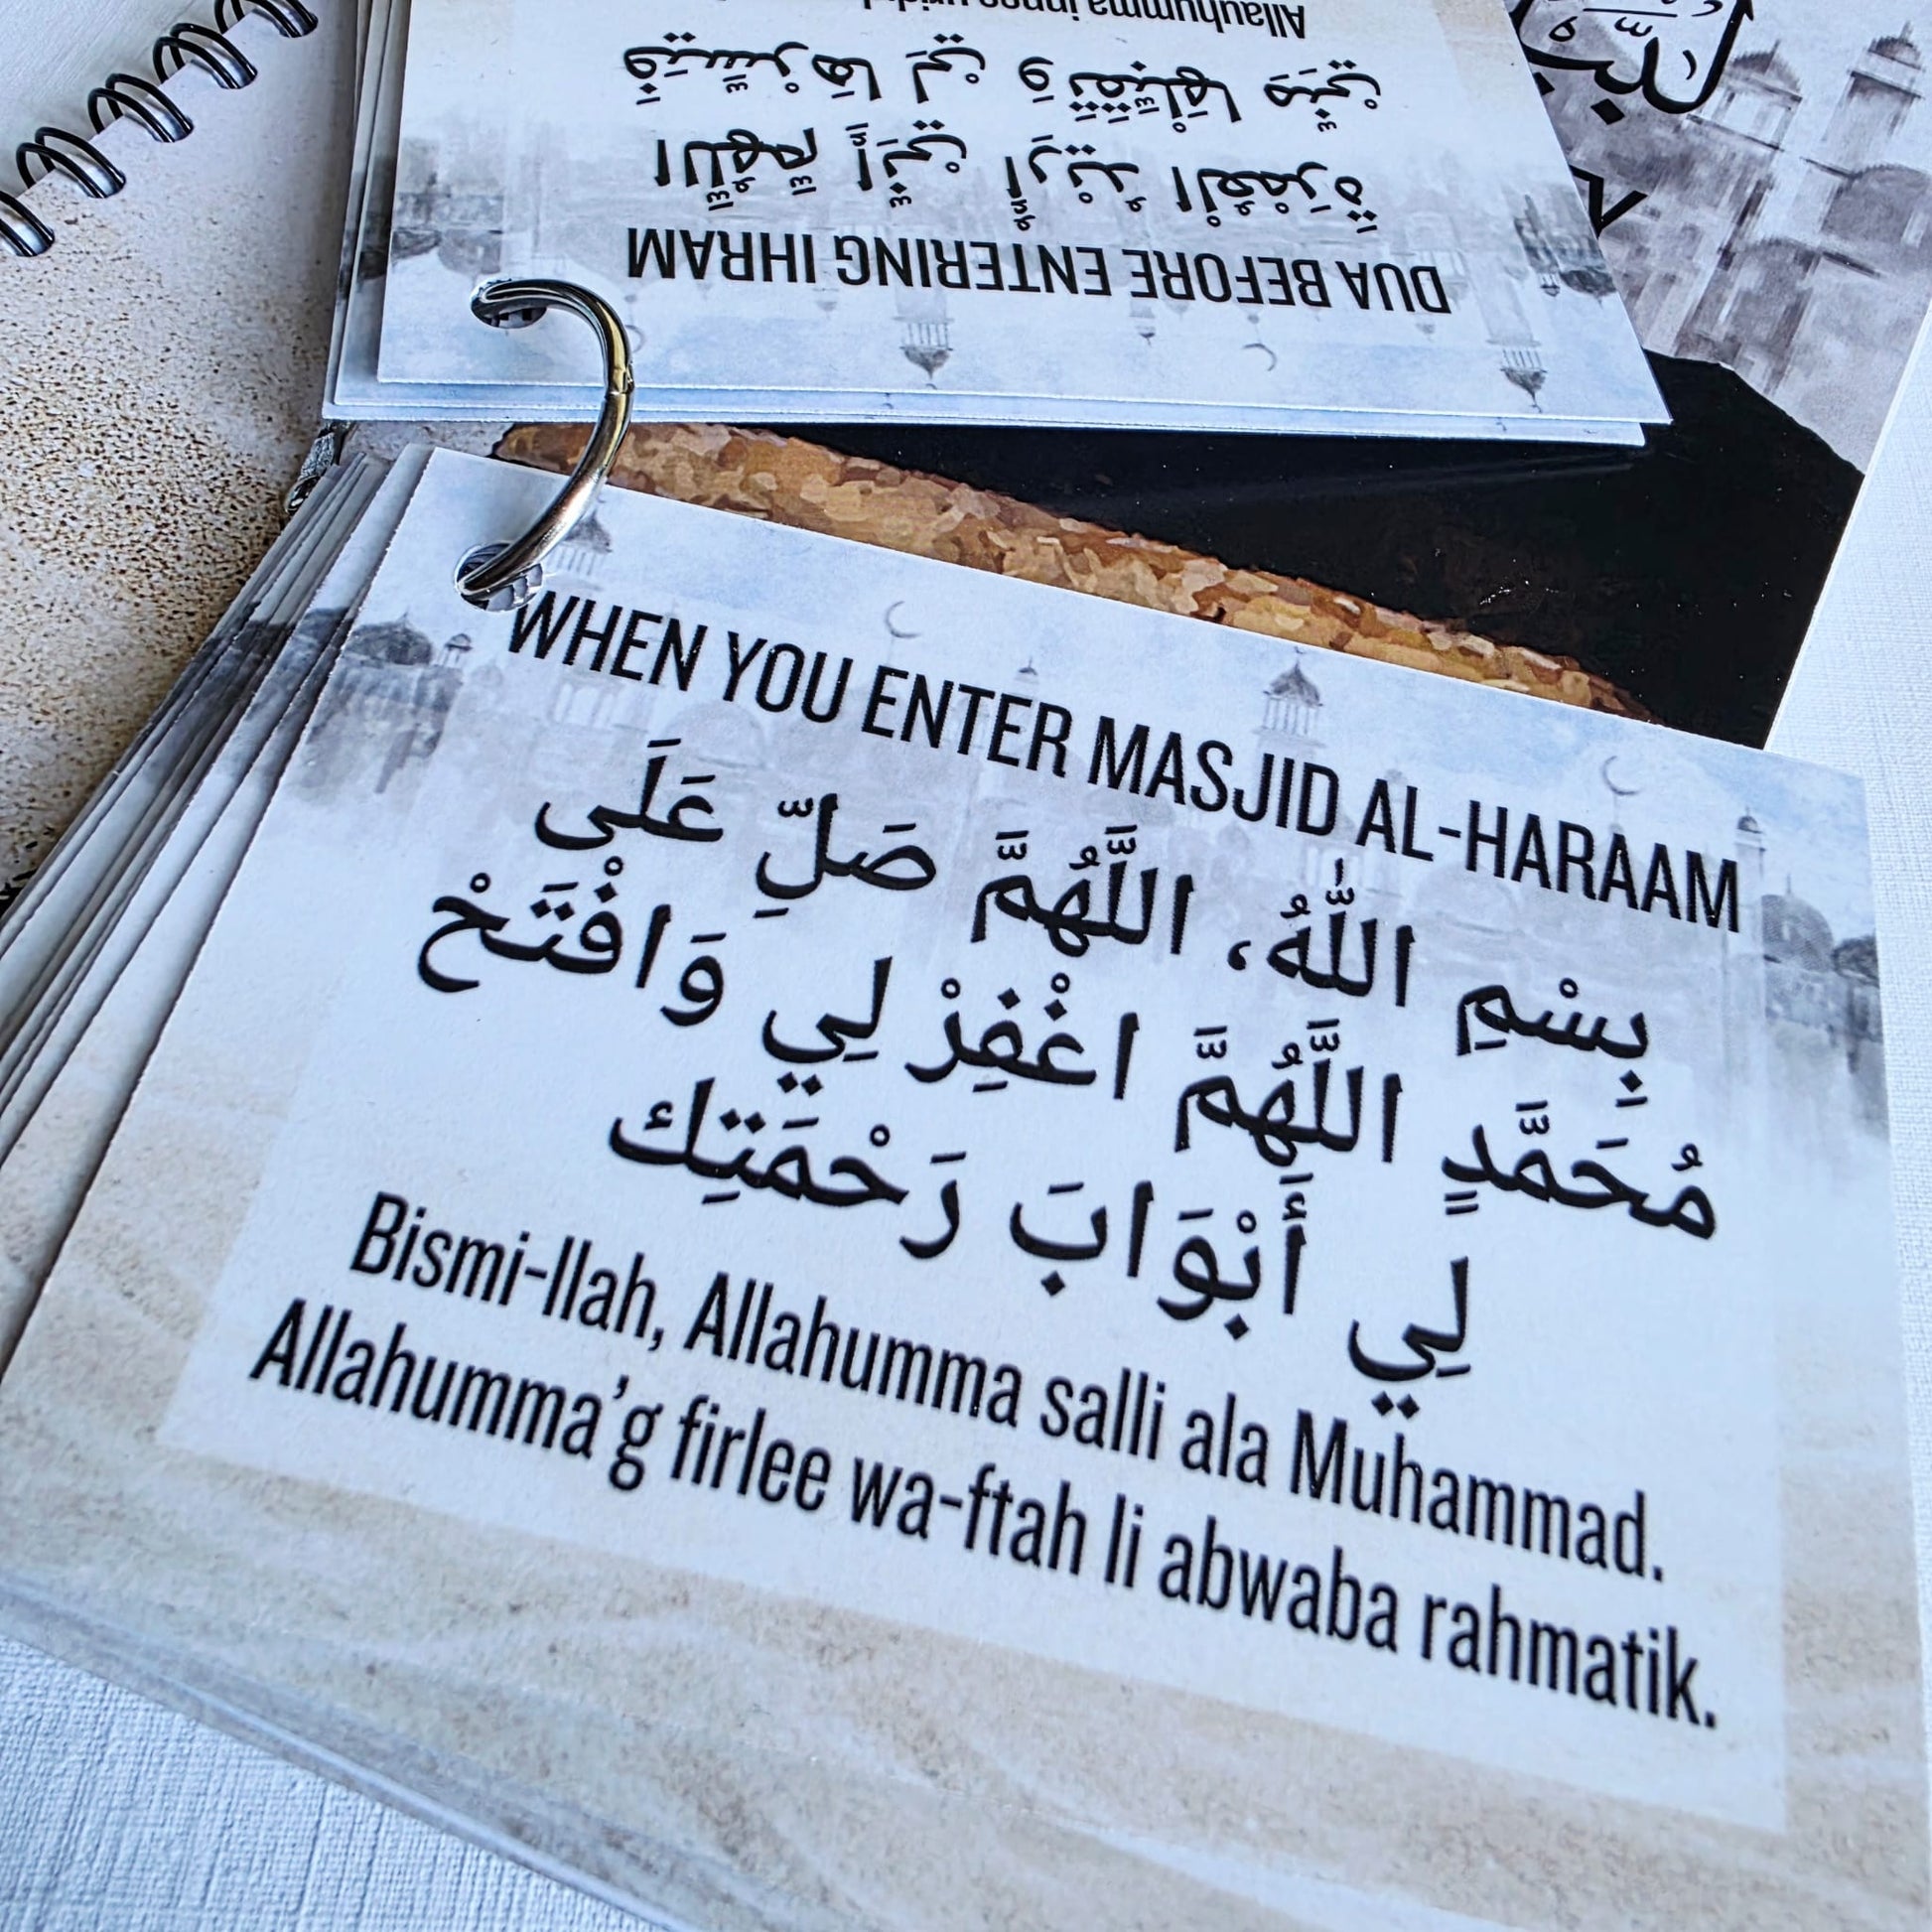 Allauhumma innee
فَيَسِّرْهَا لِيْ وَتَقَبَّلْهَا مِنِّيْ
اَللّٰهُمَّ إِنِّيْ أُرِيْدُ الْعُمْرَةَ
DUA BEFORE ENTERING IHRAM
WHEN YOU ENTER MASJID AL-HARAAM
بِسْمِ اللّٰهُ، اللَّهُمَّ صَلِّ عَلَى
مُحَمَّدٍ اللَّهُمَّ اغْفِرْ لِي وَافْتَحْ
لِي أَبْوَابَ رَحْمَتِك
Bismi-llah, Allahumma salli ala Muhammad.
Allahumma’g firlee wa-ftah li abwaba rahmatik.